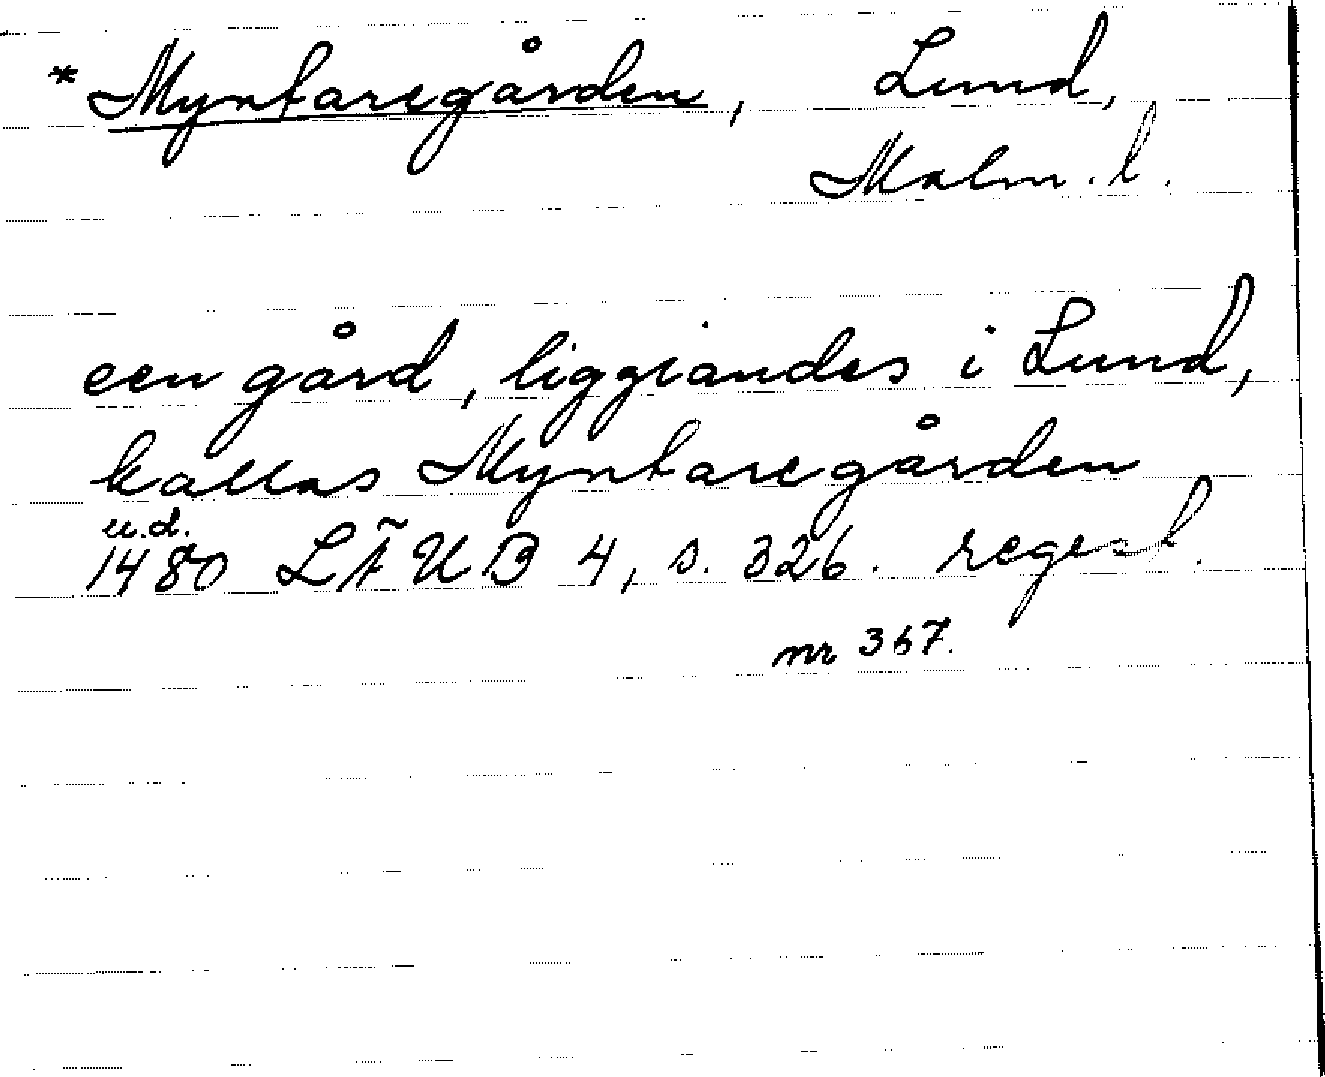 * Myntaregården, Lund,
Malm. l.
een gård, liggiandes i Lund,
kallas Myntaregården
u.d.
1480 LÄUB 4, s. 326. regest.
nr 367.